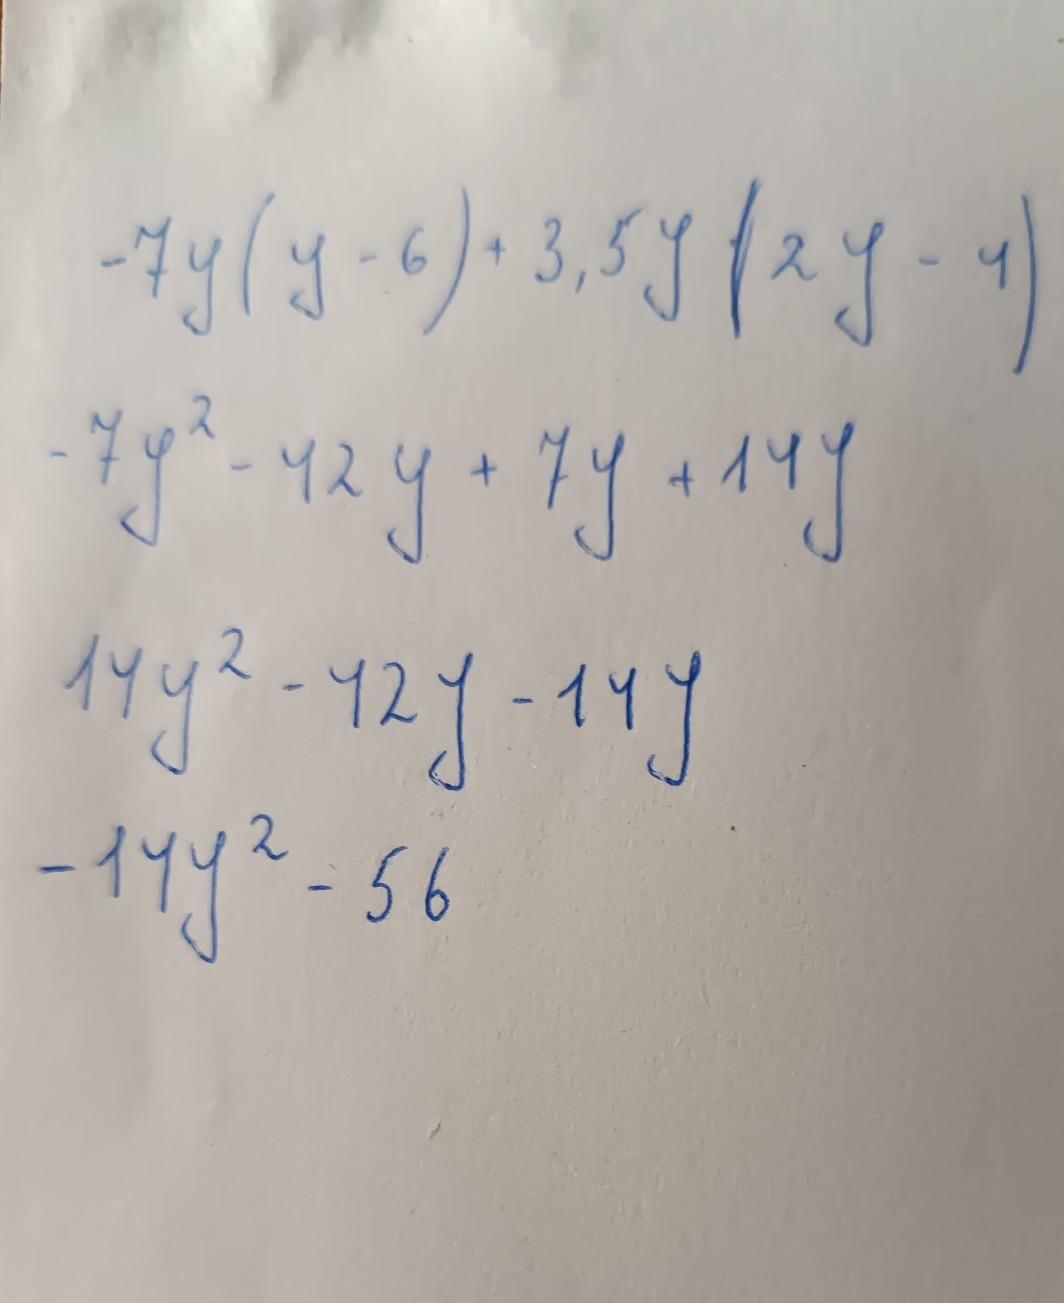 -7y(y-6)+3,5y(2y-4)
-7y²-42y+7y+14y
14y²-42y-14y
-14y²-56